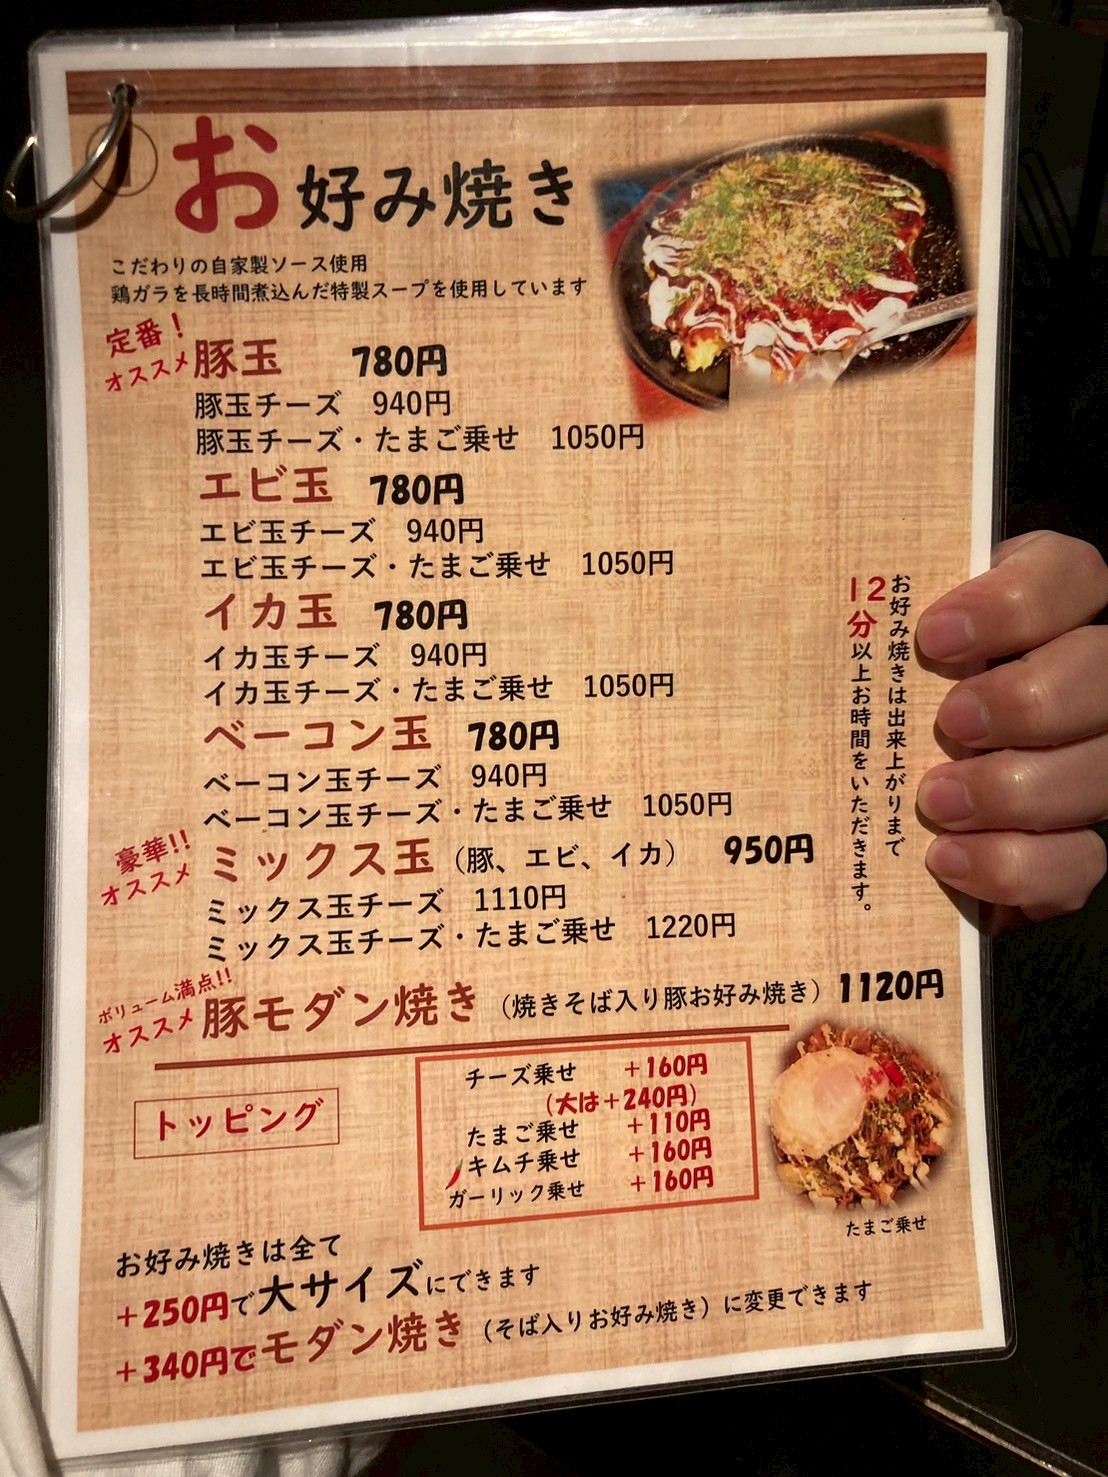 お好み焼き
こだわりの自家製ソース使用
鶏ガラを長時間煮込んだ特製スープを使用しています
定番！
オススメ
豚玉 780円
豚玉チーズ 940円
豚玉チーズ・たまご乗せ 1050円
エビ玉 780円
エビ玉チーズ 940円
エビ玉チーズ・たまご乗せ 1050円
イカ玉 780円
イカ玉チーズ 940円
イカ玉チーズ・たまご乗せ 1050円
ベーコン玉 780円
ベーコン玉チーズ 940円
ベーコン玉チーズ・たまご乗せ 1050円
豪華!!
オススメ
ミックス玉（豚、エビ、イカ） 950円
ミックス玉チーズ 1110円
ミックス玉チーズ・たまご乗せ 1220円
ボリューム満点!!
オススメ
豚モダン焼き（焼きそば入り豚お好み焼き）1120円
お好み焼きは出来上がりまで
12分以上お時間をいただきます。
トッピング
チーズ乗せ +160円
（大は+240円）
たまご乗せ +110円
キムチ乗せ +160円
ガーリック乗せ +160円
たまご乗せ
お好み焼きは全て
+250円で大サイズにできます
+340円でモダン焼き（そば入りお好み焼き）に変更できます